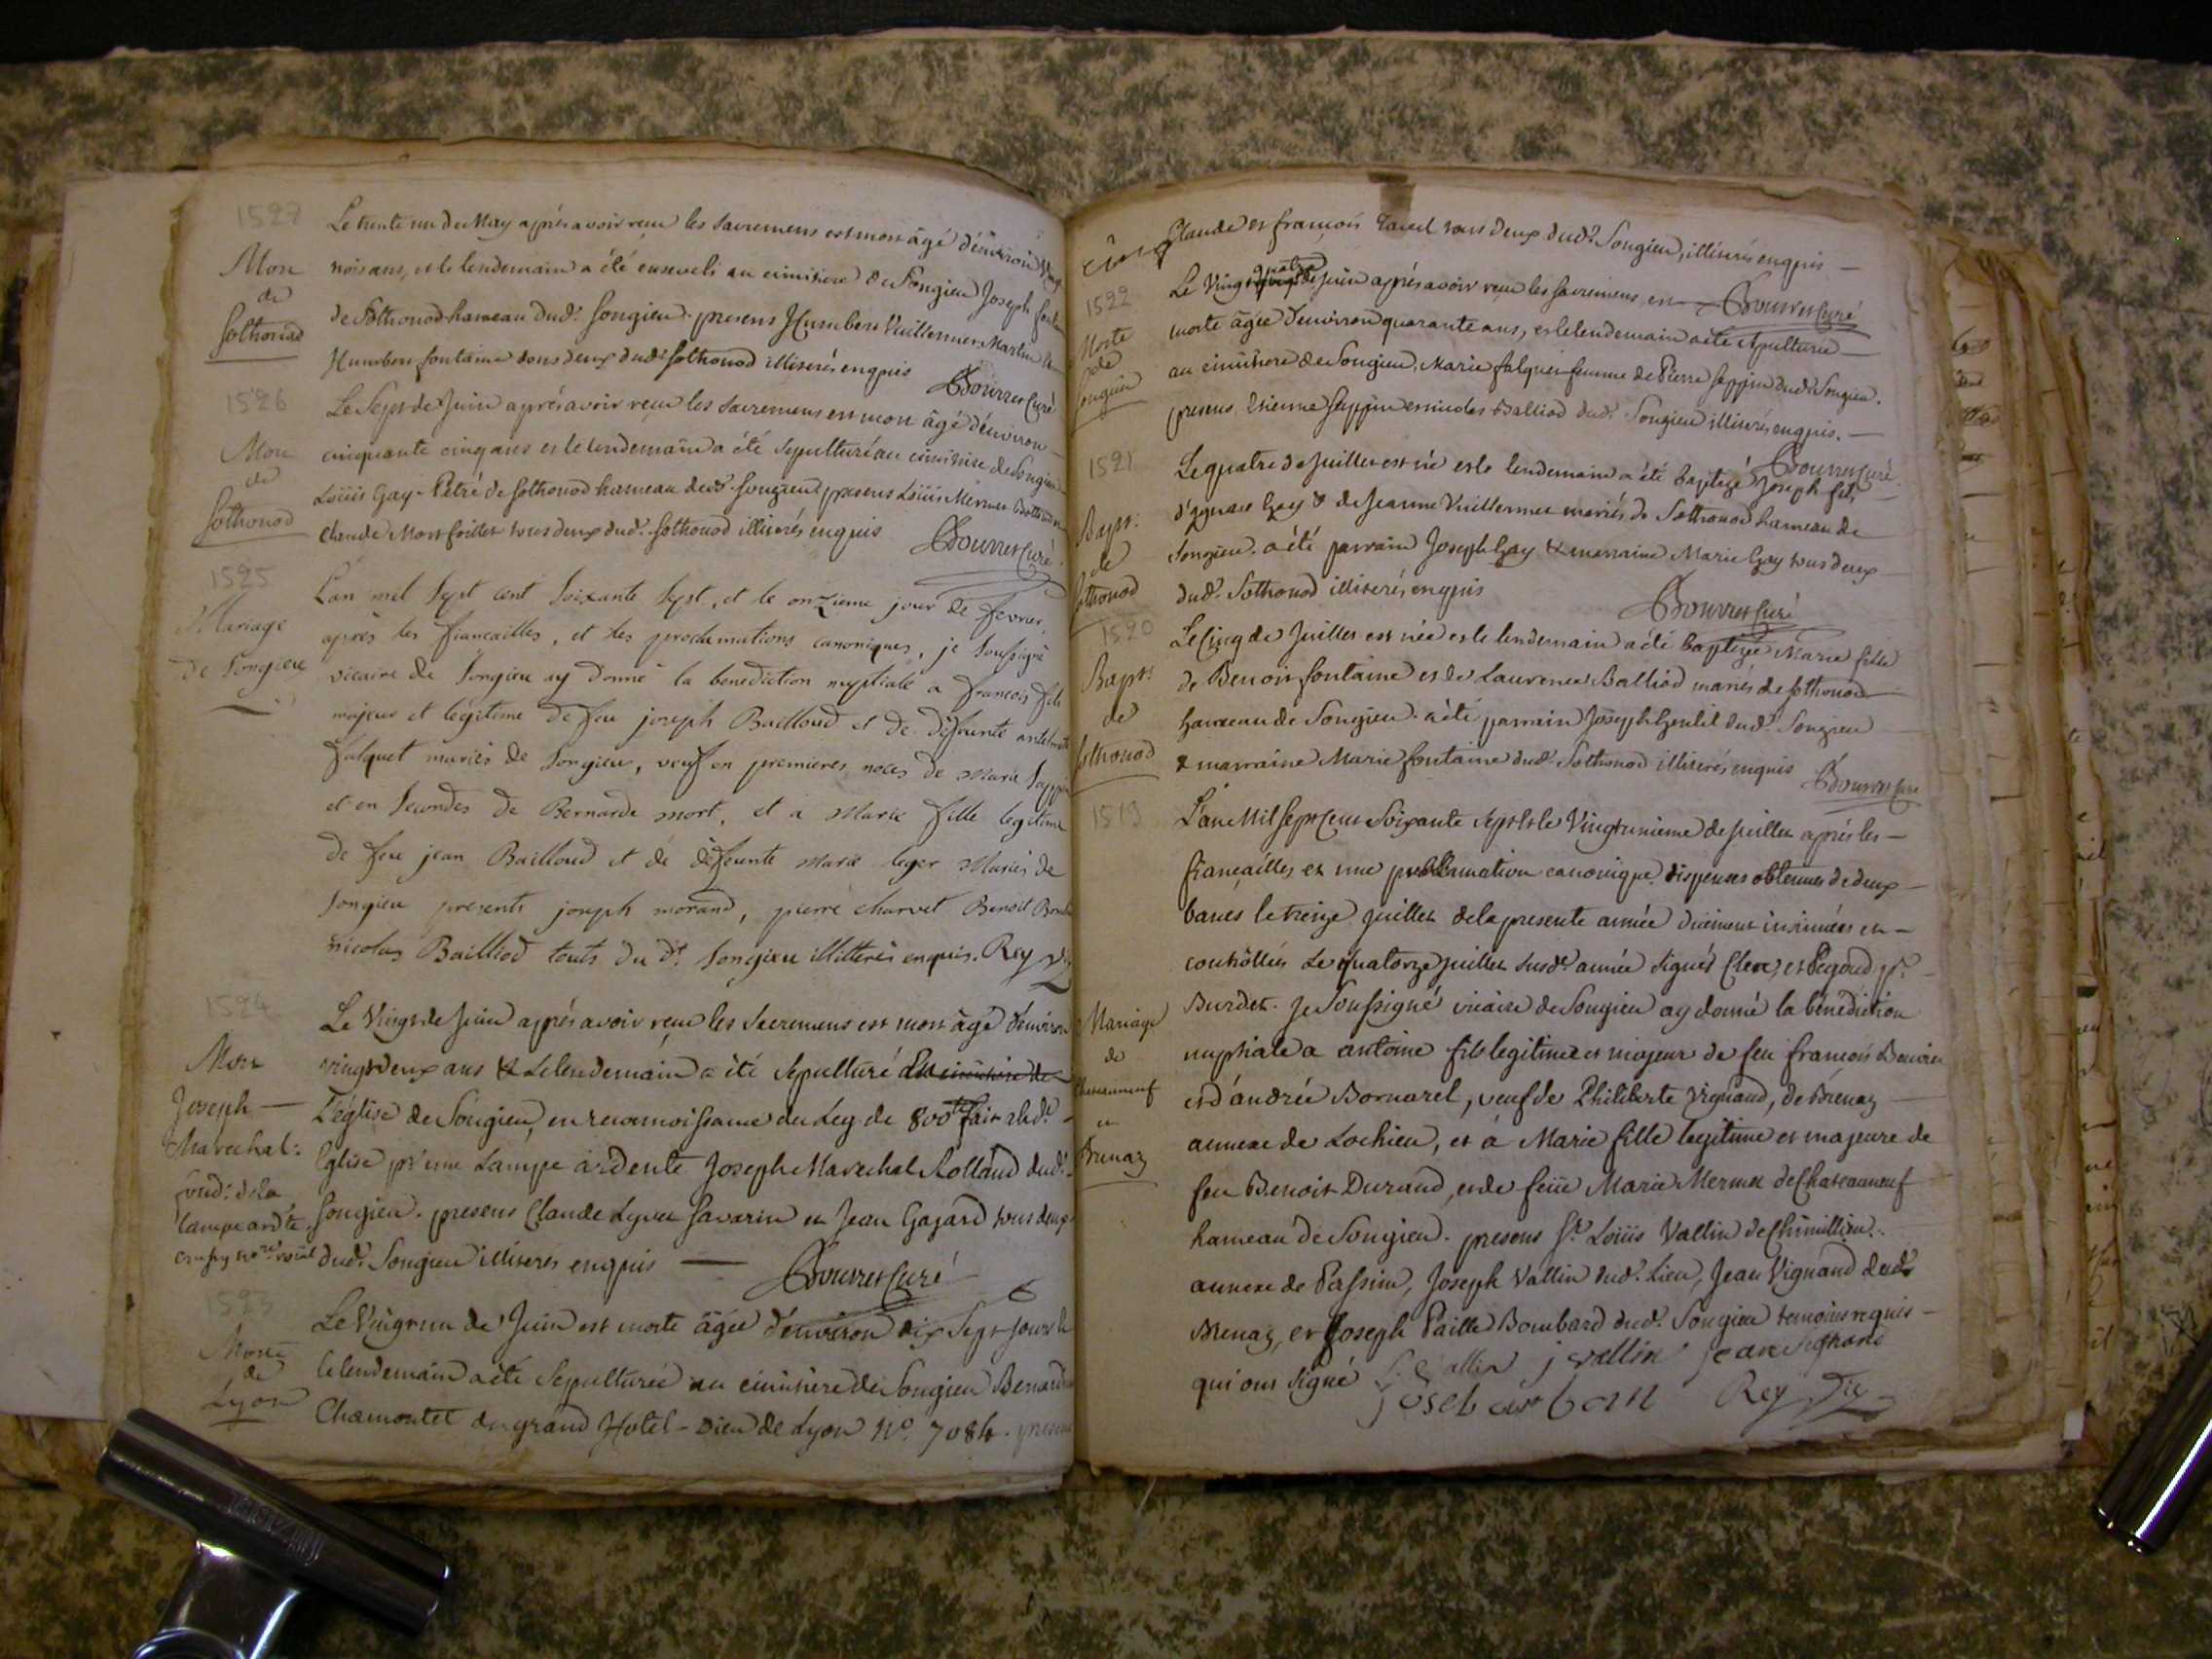 1527
Mort
de
Sothonod
Le trente un de May après avoir reçu les Sacremens est mort âgé d'environ vingt
trois ans, et le lendemain a été enseveli au cimitiere de Songieu Joseph
de Sothonod hameau dud. Songieu. presens Humbert Vuillermet Martin
Humbert fontaine tous deux dud. Sothonod illiterés enquis Bouvret Curé
1526
Mort
de
Sothonod
Le Sept de Juin après avoir reçu les Sacremens est mort âgé d'environ
cinquante cinq ans et le lendemain a été Sepulturé au cimitiere de Songieu
Loüis Gay-Petré de Sothonod hameau dud. Songieu presens Loüis Mermet
Claude Montfeillet tous deux dud. Sothonod illiterés enquis Bouvret Curé
1525
Mariage
de Songieu
L'an mil Sept cent Soixante Sept, et le onzieme jour de fevrier,
après les fiancailles, et les proclamations canoniques, je Soussigné
vicaire de Songieu ay donné la benediction nuptiale a francois fils
majeur et legitime de feu joseph Bailloud et de défunte
falquet mariés de Songieu, veuf en premieres noces de Marie Seppin
et en Secondes de Bernarde mort, et a Marie fille legitime
de feu jean Bailloud et de défeunte Marie leger Mariés de
Songieu presents joseph morand, pierre charvet Benoit
nicolas Bailliod touts du dt. Songieu illitterés enquis. Rey
1524
Mort
Joseph
Marechal
fond. de la
lampe ard.te
Le Vingt de Juin après avoir reçu les Sacremens est mort âgé d'environ
vingt deux ans & le lendemain a été Sepulturé au cimitiere de
L'église de Songieu, en reconnoissance du Leg de 800 fait alad.
Eglise pr une Lampe ardente Joseph Marechal Rolland dud.
Songieu. presens Claude Lyvet Savarin et Jean Gajard tous deux
dud. Songieu illiteres enquis Bouvret Curé
1523
Morte
de
Lyon
Le Vingt un de Juin est morte âgée d'environ dix Sept jours &
le lendemain a été Sepulturée au cimitiere de Songieu Benarde
Chamontet du grand Hotel-Dieu de Lyon No. 7084. presens
Claude et françois tous deux dud. Songieu, illiterés enquis
1522
Morte
de
Songieu
Le Vingt quatre de Juin après avoir reçu les Sacremens est Bouvret Curé
morte âgée d'environ quarante ans, et le lendemain a été sepulturée
au cimitiere de Songieu, Marie falquet femme de Pierre Seppin dud. Songieu.
presens Etienne Seppin et nicolas Balliod dud. Songieu illiterés enquis.
Bouvret Curé
1521
Bapt.
de
Sothonod
Le quatre de Juillet est né et le lendemain a été baptizé Joseph fils
d'ignace Gay & de Jeanne Vuillermet mariés de Sothonod hameau de
Songieu. a été parrain Joseph Gay & marraine Marie Gay tous deux
dud. Sothonod illiterés enquis
Bouvret Curé
1520
Bapt.
de
Sothonod
Le Cinq de Juillet est née et le lendemain a été baptizée Marie fille
de Benoit fontaine et de Laurence Balliod mariés de Sothonod
hameau de Songieu. a été parrain Joseph Gentil dud. Songieu
& marraine Marie fontaine dud. Sothonod illiterés enquis Bouvret Curé
1519
Mariage
de
Chateauneuf
en
Brenaz
L'an Mil Sept Cent Soixante Sept et le Vingt unieme de juillet après les
fiançailles et une proclamation canonique, dispenses obtenues de deux
bancs le treize juillet de la presente année duement insinuées et
controllées Le quatorze juillet susde. année Signés Clerc, et Pegoud pr.
Burdet. Je Soussigné vicaire de Songieu ay donné la bénédiction
nuptiale a antoine fils legitime et majeur de feu francois Bouvier
et d'andrée Bornarel, veuf de Philiberte Vignand, de Brenaz
annexe de Lochieu, et à Marie fille legitime et majeure de
feu Benoit Durand, et de feüe Marie Mermet de Chateauneuf
hameau de Songieu. presens Sr. Loüis Vallin de Chimillieu
annexe de Passin, Joseph Vallin dud. Lieu, Jean Vignand dud.
Brenaz, et Joseph Paillet Bombard dud. Songieu temoins requis
qui ont Signé L Vallin j vallin jean vignand
Rey Vic